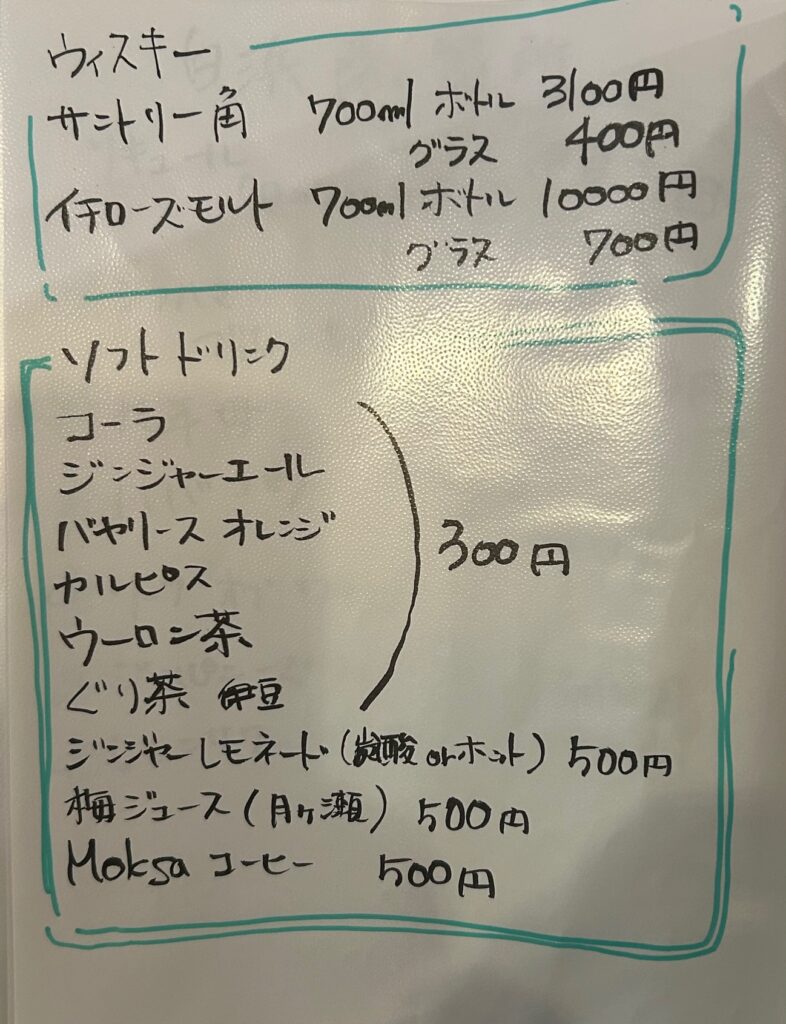 ウィスキー
サントリー角 700ml ボトル 3100円
グラス 400円
イチローズモルト 700ml ボトル 10000円
グラス 700円
ソフトドリンク
コーラ
ジンジャーエール
バヤリース オレンジ
カルピス
ウーロン茶
ぐり茶 伊豆
300円
ジンジャーレモネード(炭酸 or ホット) 500円
梅ジュース(月ヶ瀬) 500円
Moksa コーヒー 500円